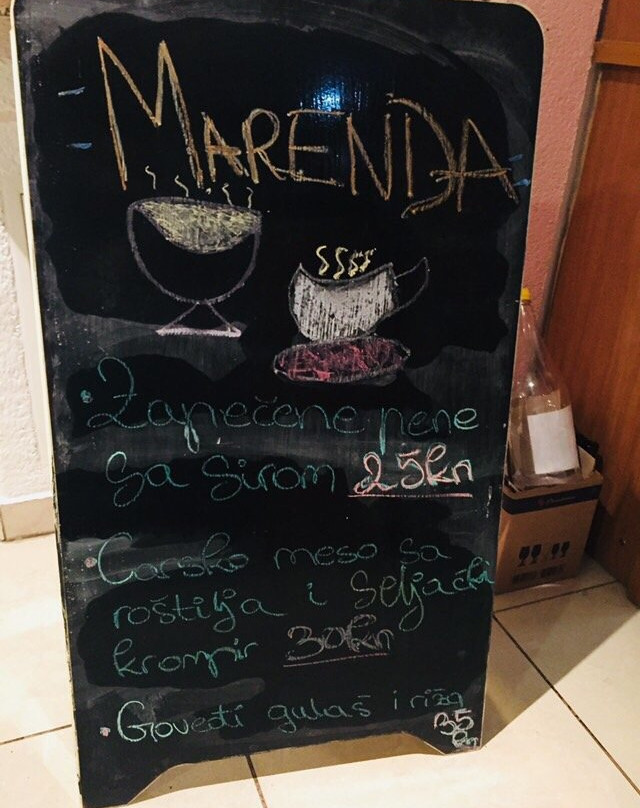 MARENDA
• Zapečene pene
sa sirom 25kn
• Carsko meso sa
roštilja i Seljački
krompir 30kn
• Goveđi gulaš i riža
35
kn